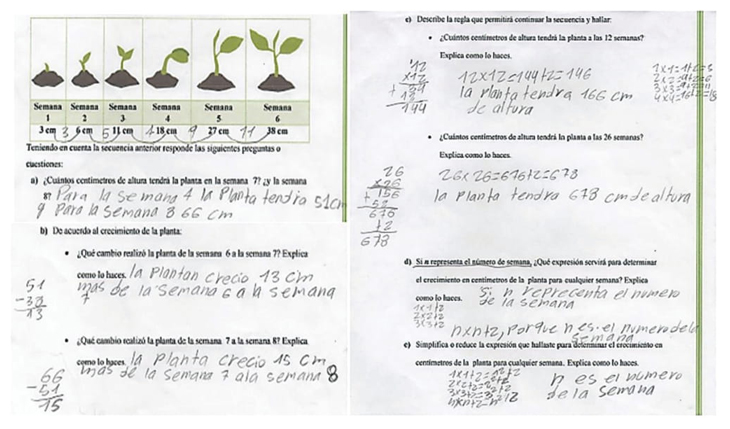 Semana 1 Semana 2 Semana 3 Semana 4 Semana 5 Semana 6
3 cm 3 6 cm 5 11 cm 7 18 cm 9 27 cm 11 38 cm
Teniendo en cuenta la secuencia anterior responde las siguientes preguntas o
cuestiones:
a) ¿Cuántos centímetros de altura tendrá la planta en la semana 7? ¿y la semana
8? Para la semana 7 la Planta tendria 51cm
y Para la semana 8 66 cm
b) De acuerdo al crecimiento de la planta:
• ¿Qué cambio realizó la planta de la semana 6 a la semana 7? Explica
como lo haces. la Plantan crecio 13 cm
mas de la semana 6 a la semana
7
51
-38
13
• ¿Qué cambio realizó la planta de la semana 7 a la semana 8? Explica
como lo haces. la Planta crecio 15 cm
mas de la semana 7 ala semana 8
66
-51
15
c) Describe la regla que permitirá continuar la secuencia y hallar:
• ¿Cuántos centímetros de altura tendrá la planta a las 12 semanas?
Explica como lo haces.
12
x12
144
12x12=144+2=146
la planta tendra 166 cm
de altura
1x1=1+2=3
2x2=4+2=6
3x3=9+2=11
4x4=16+2=18
• ¿Cuántos centímetros de altura tendrá la planta a las 26 semanas?
Explica como lo haces.
26
x26
+156
52
676
+2
678
26x26=676+2=678
la planta tendra 678 cm de altura
d) Si n representa el número de semana, ¿Qué expresión servirá para determinar
el crecimiento en centímetros de la planta para cualquier semana? Explica
como lo haces. Si n representa el numero
de la semana
1x1+2
2x2+2
3x3+2
nxn+2, Porque n es el numero de la
semana
e) Simplifica o reduce la expresión que hallaste para determinar el crecimiento en
centímetros de la planta para cualquier semana. Explica como lo haces.
n es el número
de la semana